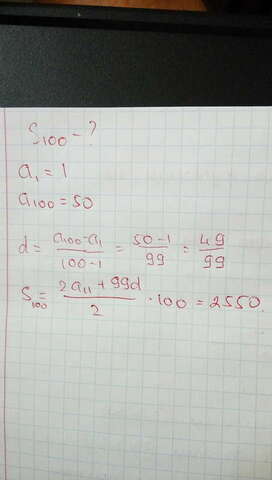 S₁₀₀ - ?
a₁ = 1
a₁₀₀ = 50
d = (a₁₀₀ - a₁)/(100 - 1) = (50 - 1)/99 = 49/99
S₁₀₀ = (2a₁ + 99d)/2 · 100 = 2550.